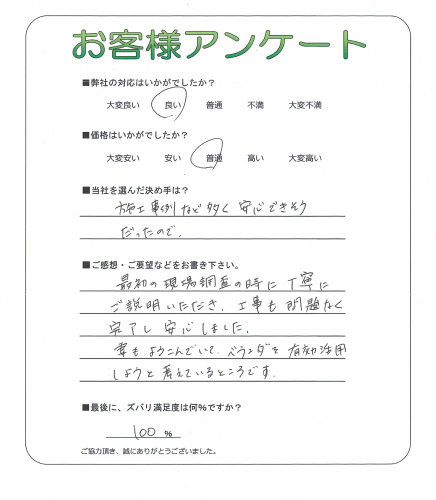 お客様アンケート
■弊社の対応はいかがでしたか?
大変良い 良い 普通 不満 大変不満
■価格はいかがでしたか?
大変安い 安い 普通 高い 大変高い
■当社を選んだ決め手は?
施工事例など多く 安心できそう
だったので。
■ご感想・ご要望などをお書き下さい。
最初の現場調査の時に丁寧に
ご説明いただき、工事も問題なく
完了し安心しました。
妻もよろこんでいて、ベランダを有効活用
しようと考えているところです。
■最後に、ズバリ満足度は何%ですか?
100 %
ご協力頂き、誠にありがとうございました。